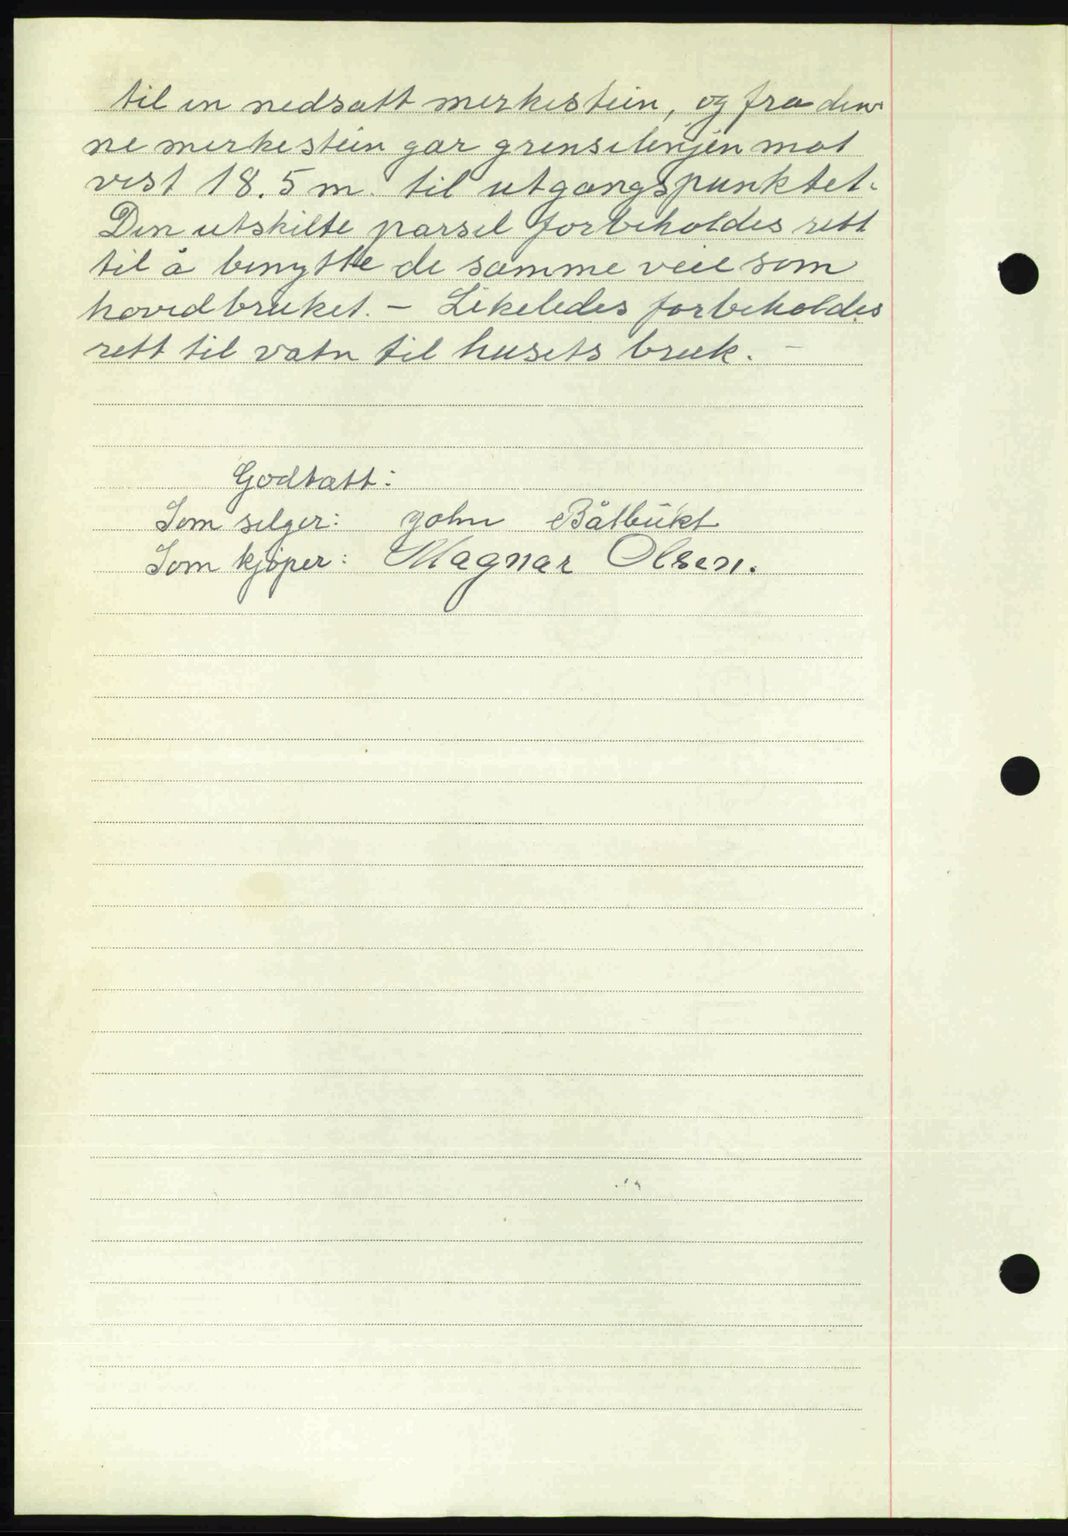 til en nedsatt merkestein, og fra den-
ne merkestein går grenselinjen mot
vest 18.5 m. til utgangspunktet.
Den utskilte parsel forbeholdes rett
til å benytte de samme veie som
hovedbruket. – Likeledes forbeholdes
rett til vatn til husets bruk. –
Godtatt:
Som selger: John Båtbukt
Som kjøper: Magnar Olsen.